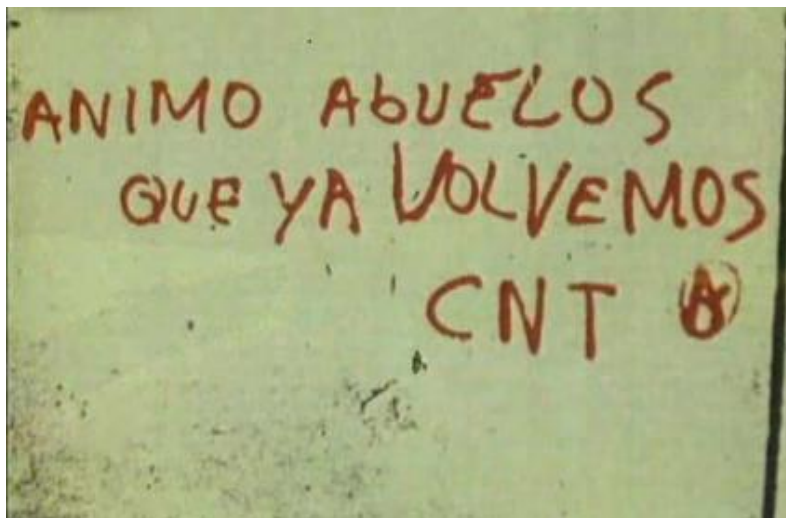 ANIMO AbUELOS
QUE YA VOLVEMOS
CNT Ⓐ